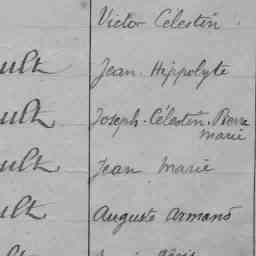 Victor Célestin
ult Jean Hippolyte
ult Joseph-Célestin Pierre
marie
ult Jean Marie
ult Auguste Armand